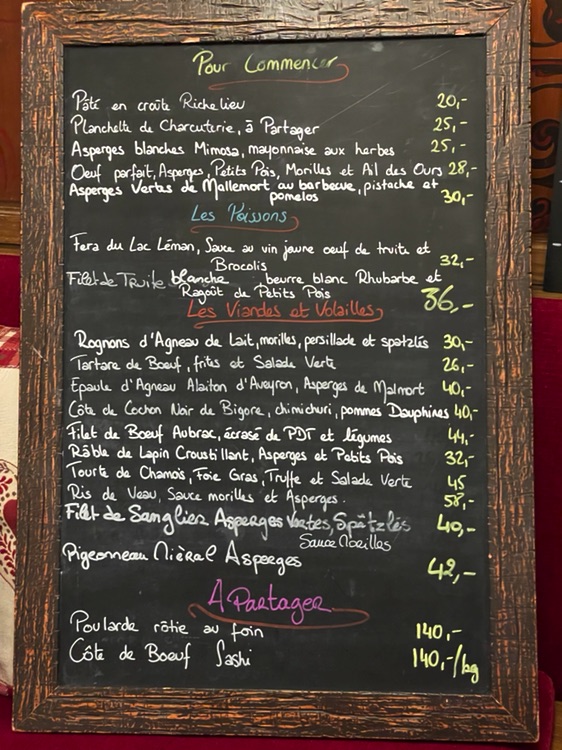 Pour Commencer
Pâté en croûte Richelieu 20,-
Planchette de Charcuterie, à Partager 25,-
Asperges blanches Mimosa, mayonnaise aux herbes 25,-
Oeuf parfait, Asperges, Petits Pois, Morilles et Ail des Ours 28,-
Asperges Vertes de Mallemort au barbecue, pistache et
pomelos 30,-
Les Poissons
Fera du Lac Léman, Sauce au vin jaune oeuf de truite et
Brocolis 32,-
Filet de Truite blanche beurre blanc Rhubarbe et
Ragoût de Petits Pois 36,-
Les Viandes et Volailles
Rognons d'Agneau de Lait, morilles, persillade et spatzlés 30,-
Tartare de Boeuf, frites et Salade Verte 26,-
Epaule d'Agneau Alaiton d'Aveyron, Asperges de Malmort 40,-
Côte de Cochon Noir de Bigore, chimichuri, pommes Dauphines 40,-
Filet de Boeuf Aubrac, écrasé de PDT et légumes 44,-
Râble de Lapin Croustillant, Asperges et Petits Pois 32,-
Tourte de Chamois, Foie Gras, Truffe et Salade Verte 45
Ris de Veau, Sauce morilles et Asperges. 58,-
Filet de Sanglier Asperges Vertes, Spätzlés 40,-
Sauce Morilles
Pigeonneau Miéral Asperges 42,-
A Partager
Poularde rôtie au foin 140,-
Côte de Boeuf Sashi 140,-/kg